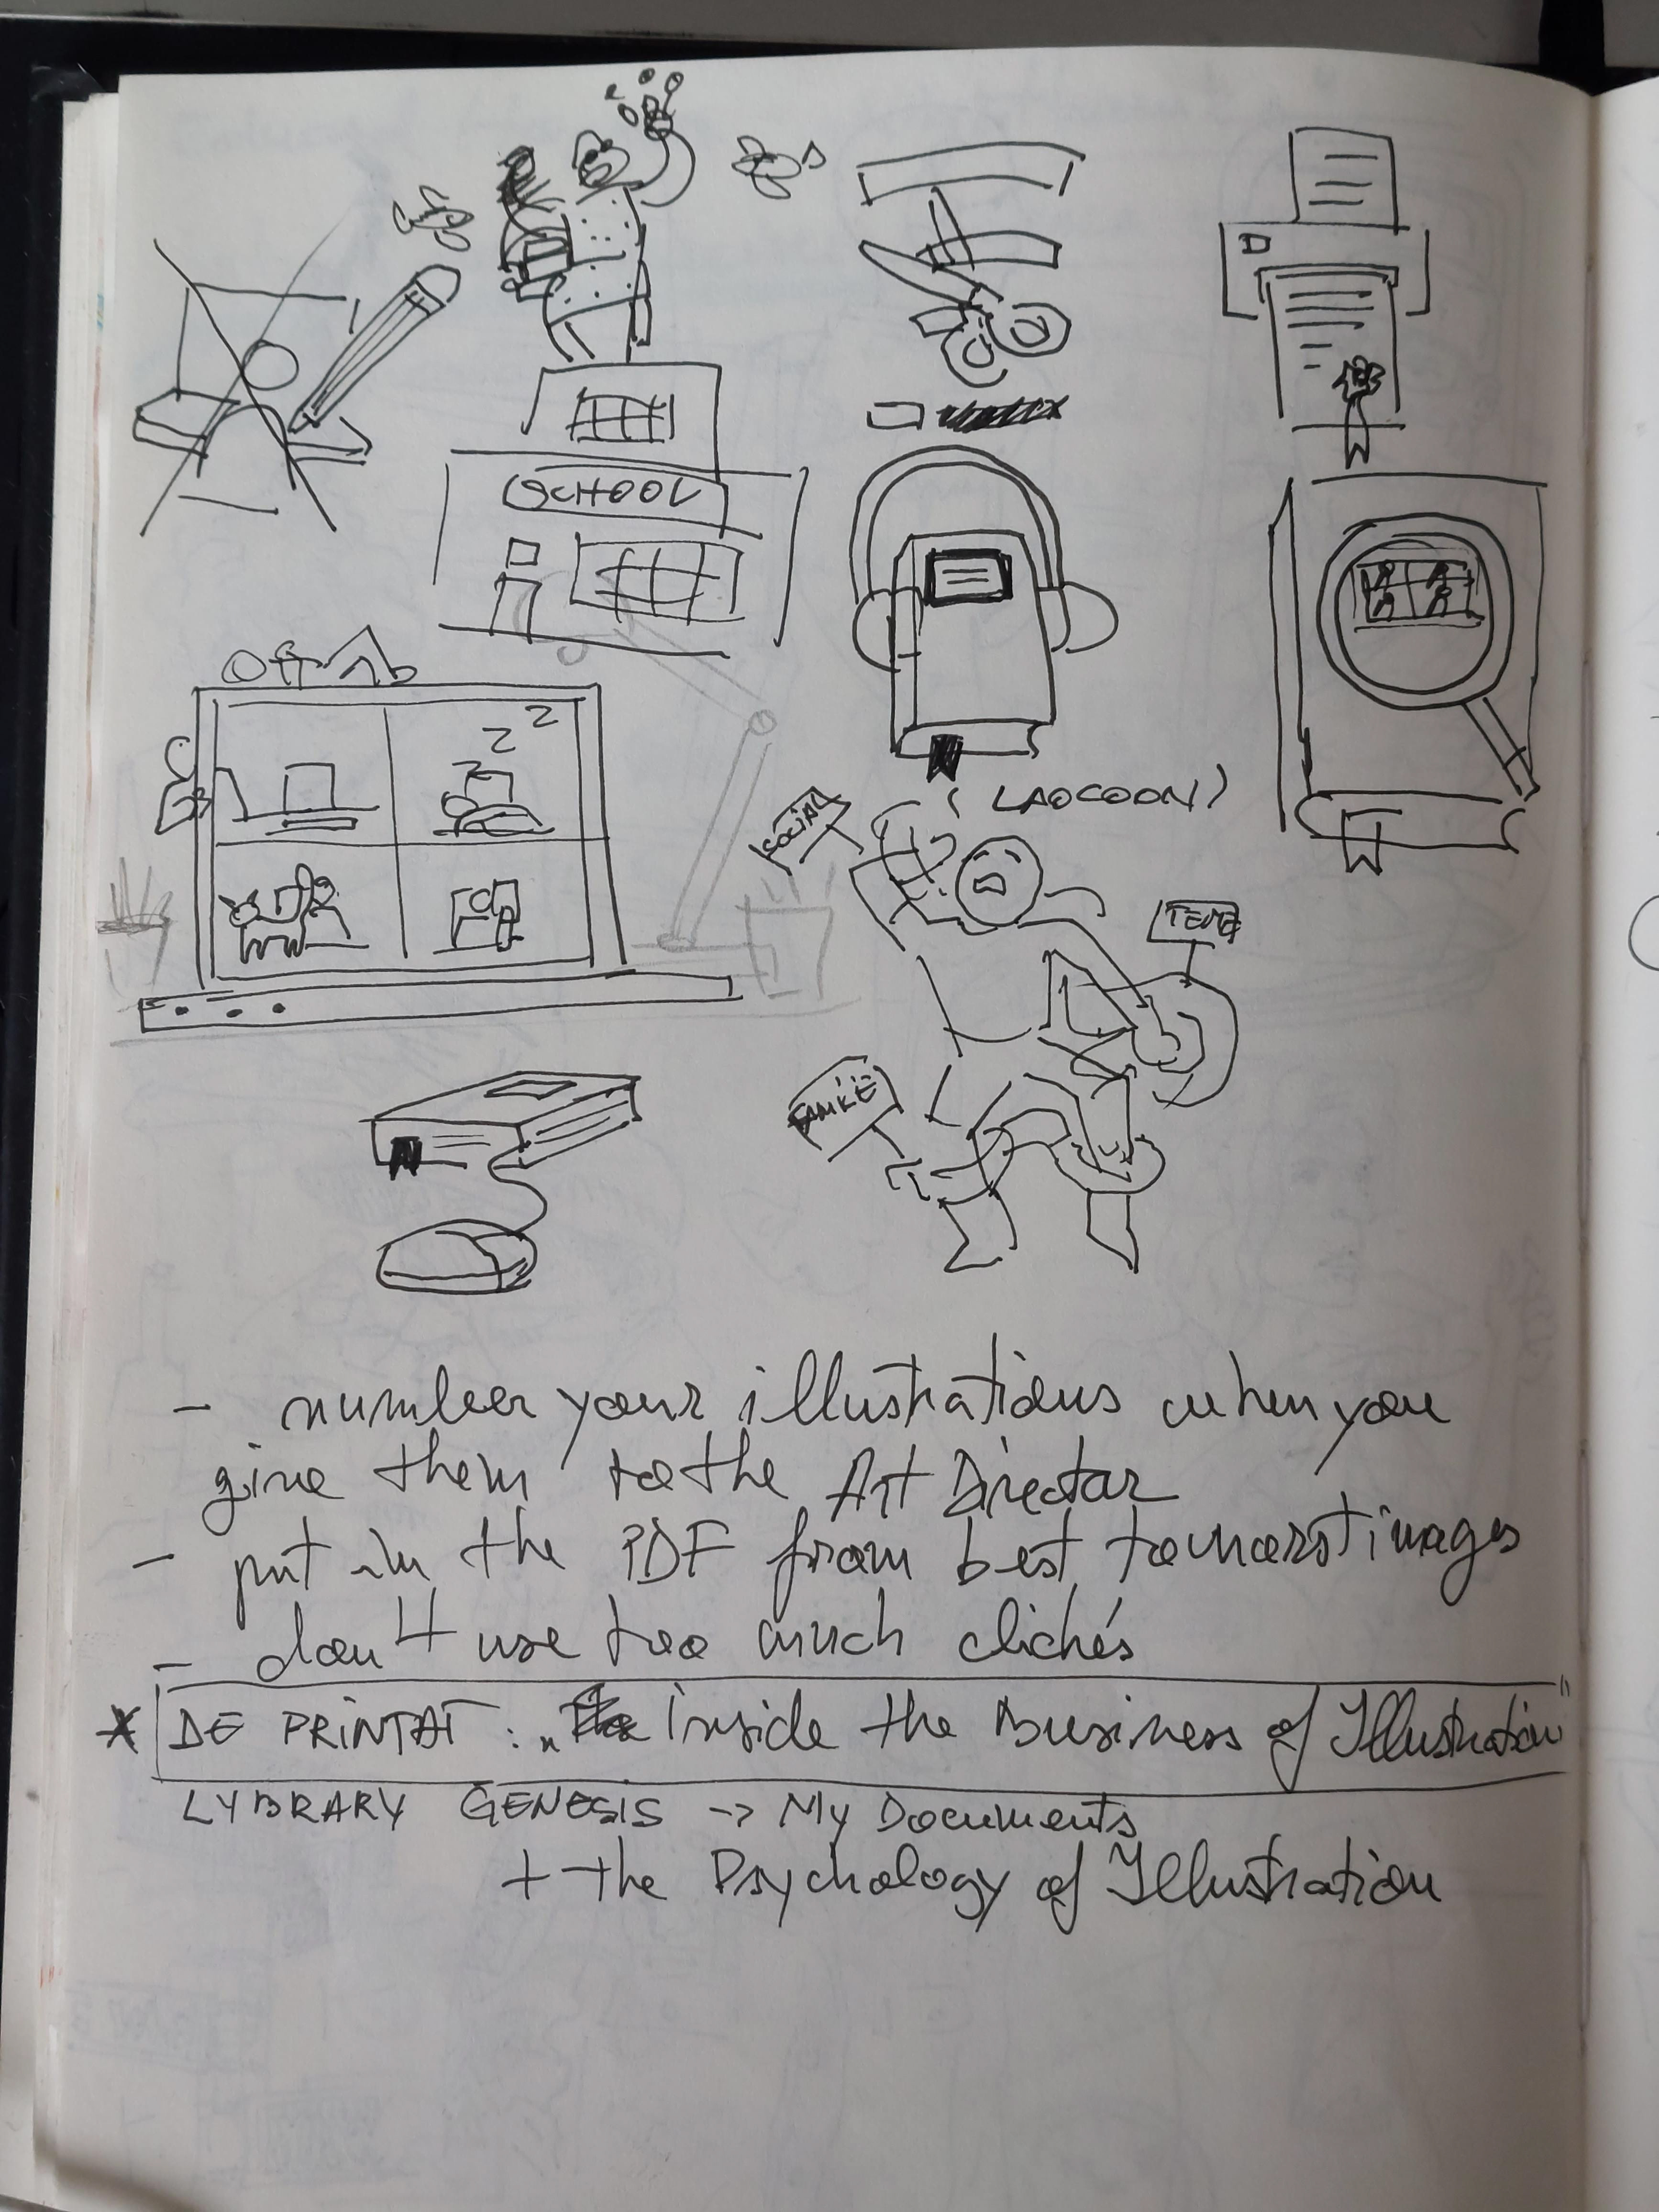 SCHOOL
z z
(LAOCOON)
SOCIAL
TEME
- number your illustrations when you
give them to the Art Director
- put in the PDF from best to worst images
- don't use too much clichés
* DE PRINTAT: „Inside the Business of Illustration"
LYBRARY GENESIS -> My Documents
+ the Psychology of Illustration